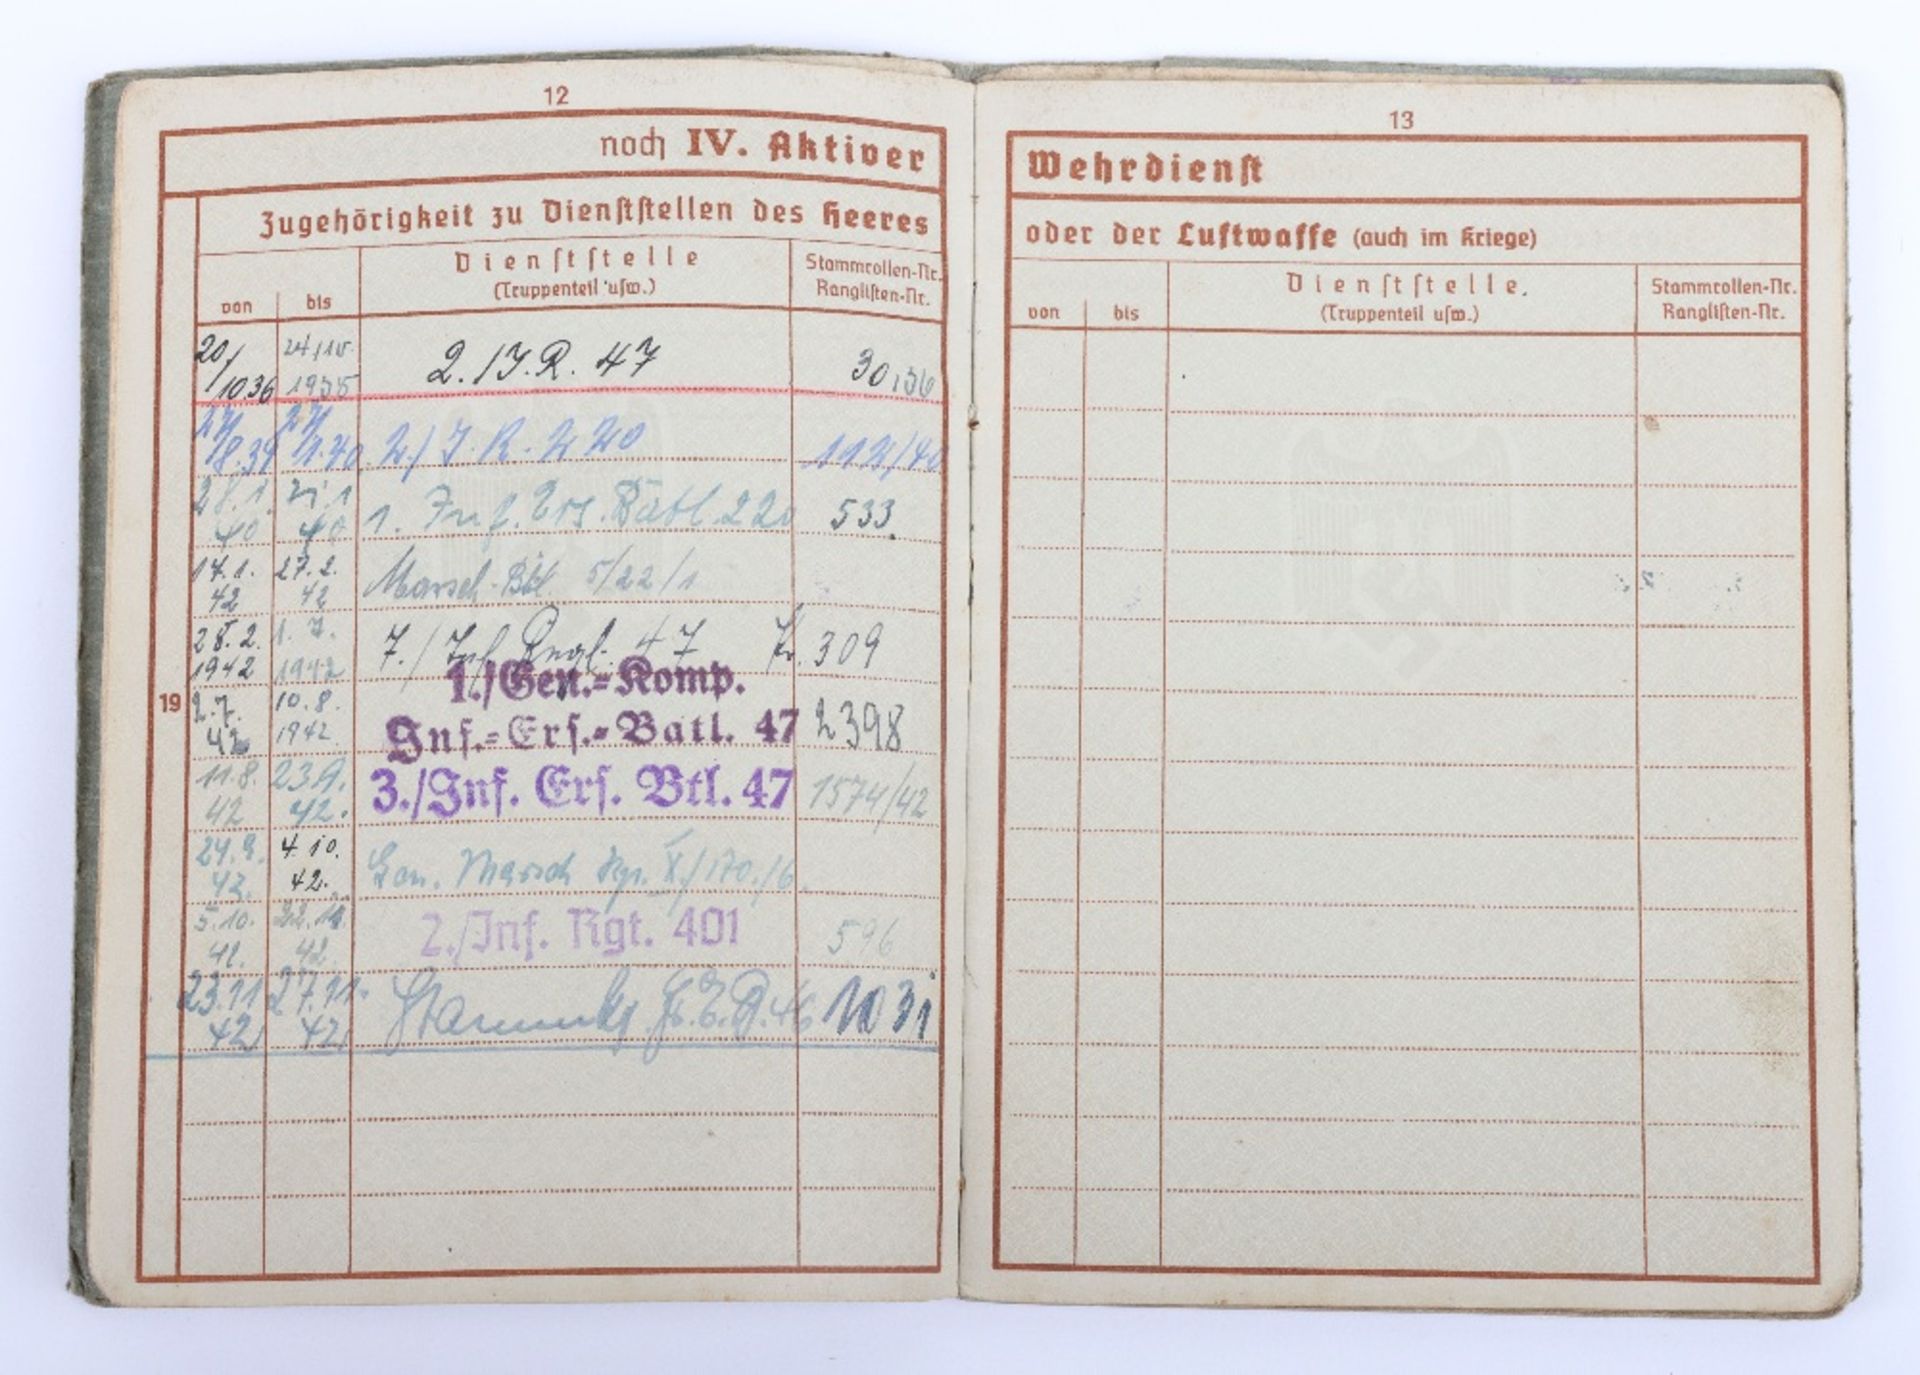 12
noch IV. Aktiver
Zugehörigkeit zu Dienststellen des Heeres
von bis Dienststelle (Truppenteil usw.) Stammrollen-Nr. Ranglisten-Nr.
20/10 36 2./J.R. 47 30,36
2./J.R. 220 112/40
28.1. 40 1. Inf. Ers. Batl. 220 533
14.1. 42 27.2. 42 Marsch-Btl. 5/22/1
28.2. 1942 1.7. 1942 7./Inf. Regt. 47 309
19
2.7. 42 10.8. 1942 1./Gen.=Komp.
Inf.=Ers.=Batl. 47 2398
11.8. 42 23.9. 42. 3./Inf. Ers. Btl. 47 1574/42
24.9. 42. 4.10. 42. Gen. Marsch Kp. X/170/6.
5.10. 42. 42. 2./Inf. Rgt. 401 596
23.11 42 27.11. 42 1031
13
Wehrdienst
oder der Luftwaffe (auch im Kriege)
von bis Dienststelle. (Truppenteil usw.) Stammrollen-Nr. Ranglisten-Nr.